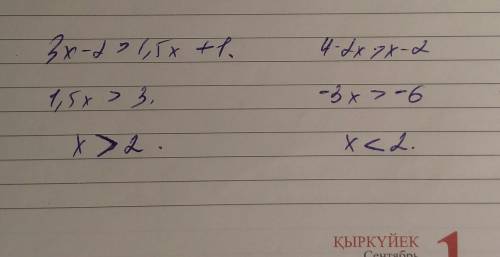 3x-2>1,5x+1.
1,5x>3.
x>2.
4-2x>x-2
-3x>-6
x<2.
ҚЫРКҮЙЕК
Сентябрь
1